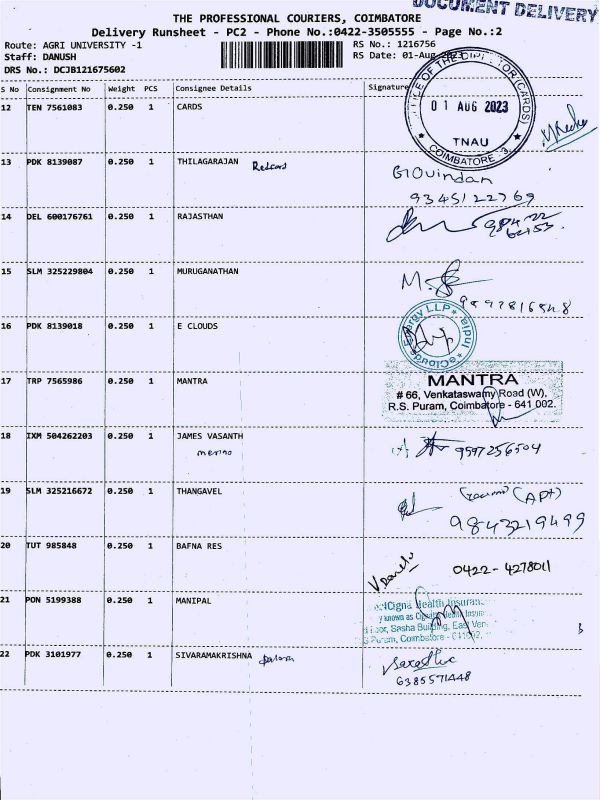 DOCUMENT DELIVERY
THE PROFESSIONAL COURIERS, COIMBATORE
Delivery Runsheet - PC2 - Phone No.:0422-3505555 - Page No.:2
Route: AGRI UNIVERSITY -1
Staff: DANUSH
DRS No.: DCJB121675602
RS No.: 1216756
RS Date: 01-Aug-2023
S No Consignment No Weight PCS Consignee Details Signature
OFFICE OF THE DIRECTOR (CARDS)
01 AUG 2023
TNAU
COIMBATORE - 3
12 TEN 7561083 0.250 1 CARDS
13 PDK 8139087 0.250 1 THILAGARAJAN
Govindan
9345122769
14 DEL 600176761 0.250 1 RAJASTHAN
15 SLM 325229804 0.250 1 MURUGANATHAN
16 PDK 8139018 0.250 1 E CLOUDS
Energy LLP * India * eClouds
17 TRP 7565986 0.250 1 MANTRA
MANTRA
# 66, Venkataswamy Road (W),
R.S. Puram, Coimbatore - 641 002.
18 IXM 504262203 0.250 1 JAMES VASANTH
merino
9597256504
19 SLM 325216672 0.250 1 THANGAVEL
(APT)
9843219499
20 TUT 985848 0.250 1 BAFNA RES
0422-4278011
21 PON 5199388 0.250 1 MANIPAL
Cigna Health Insuran
y known as Cigna Health Insur
Floor, Sasha Building, East Ven
Puram, Coimbatore - 641002.
22 PDK 3101977 0.250 1 SIVARAMAKRISHNA
6385571448